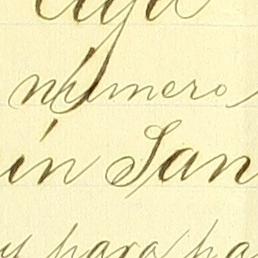 número
in San
y para pa